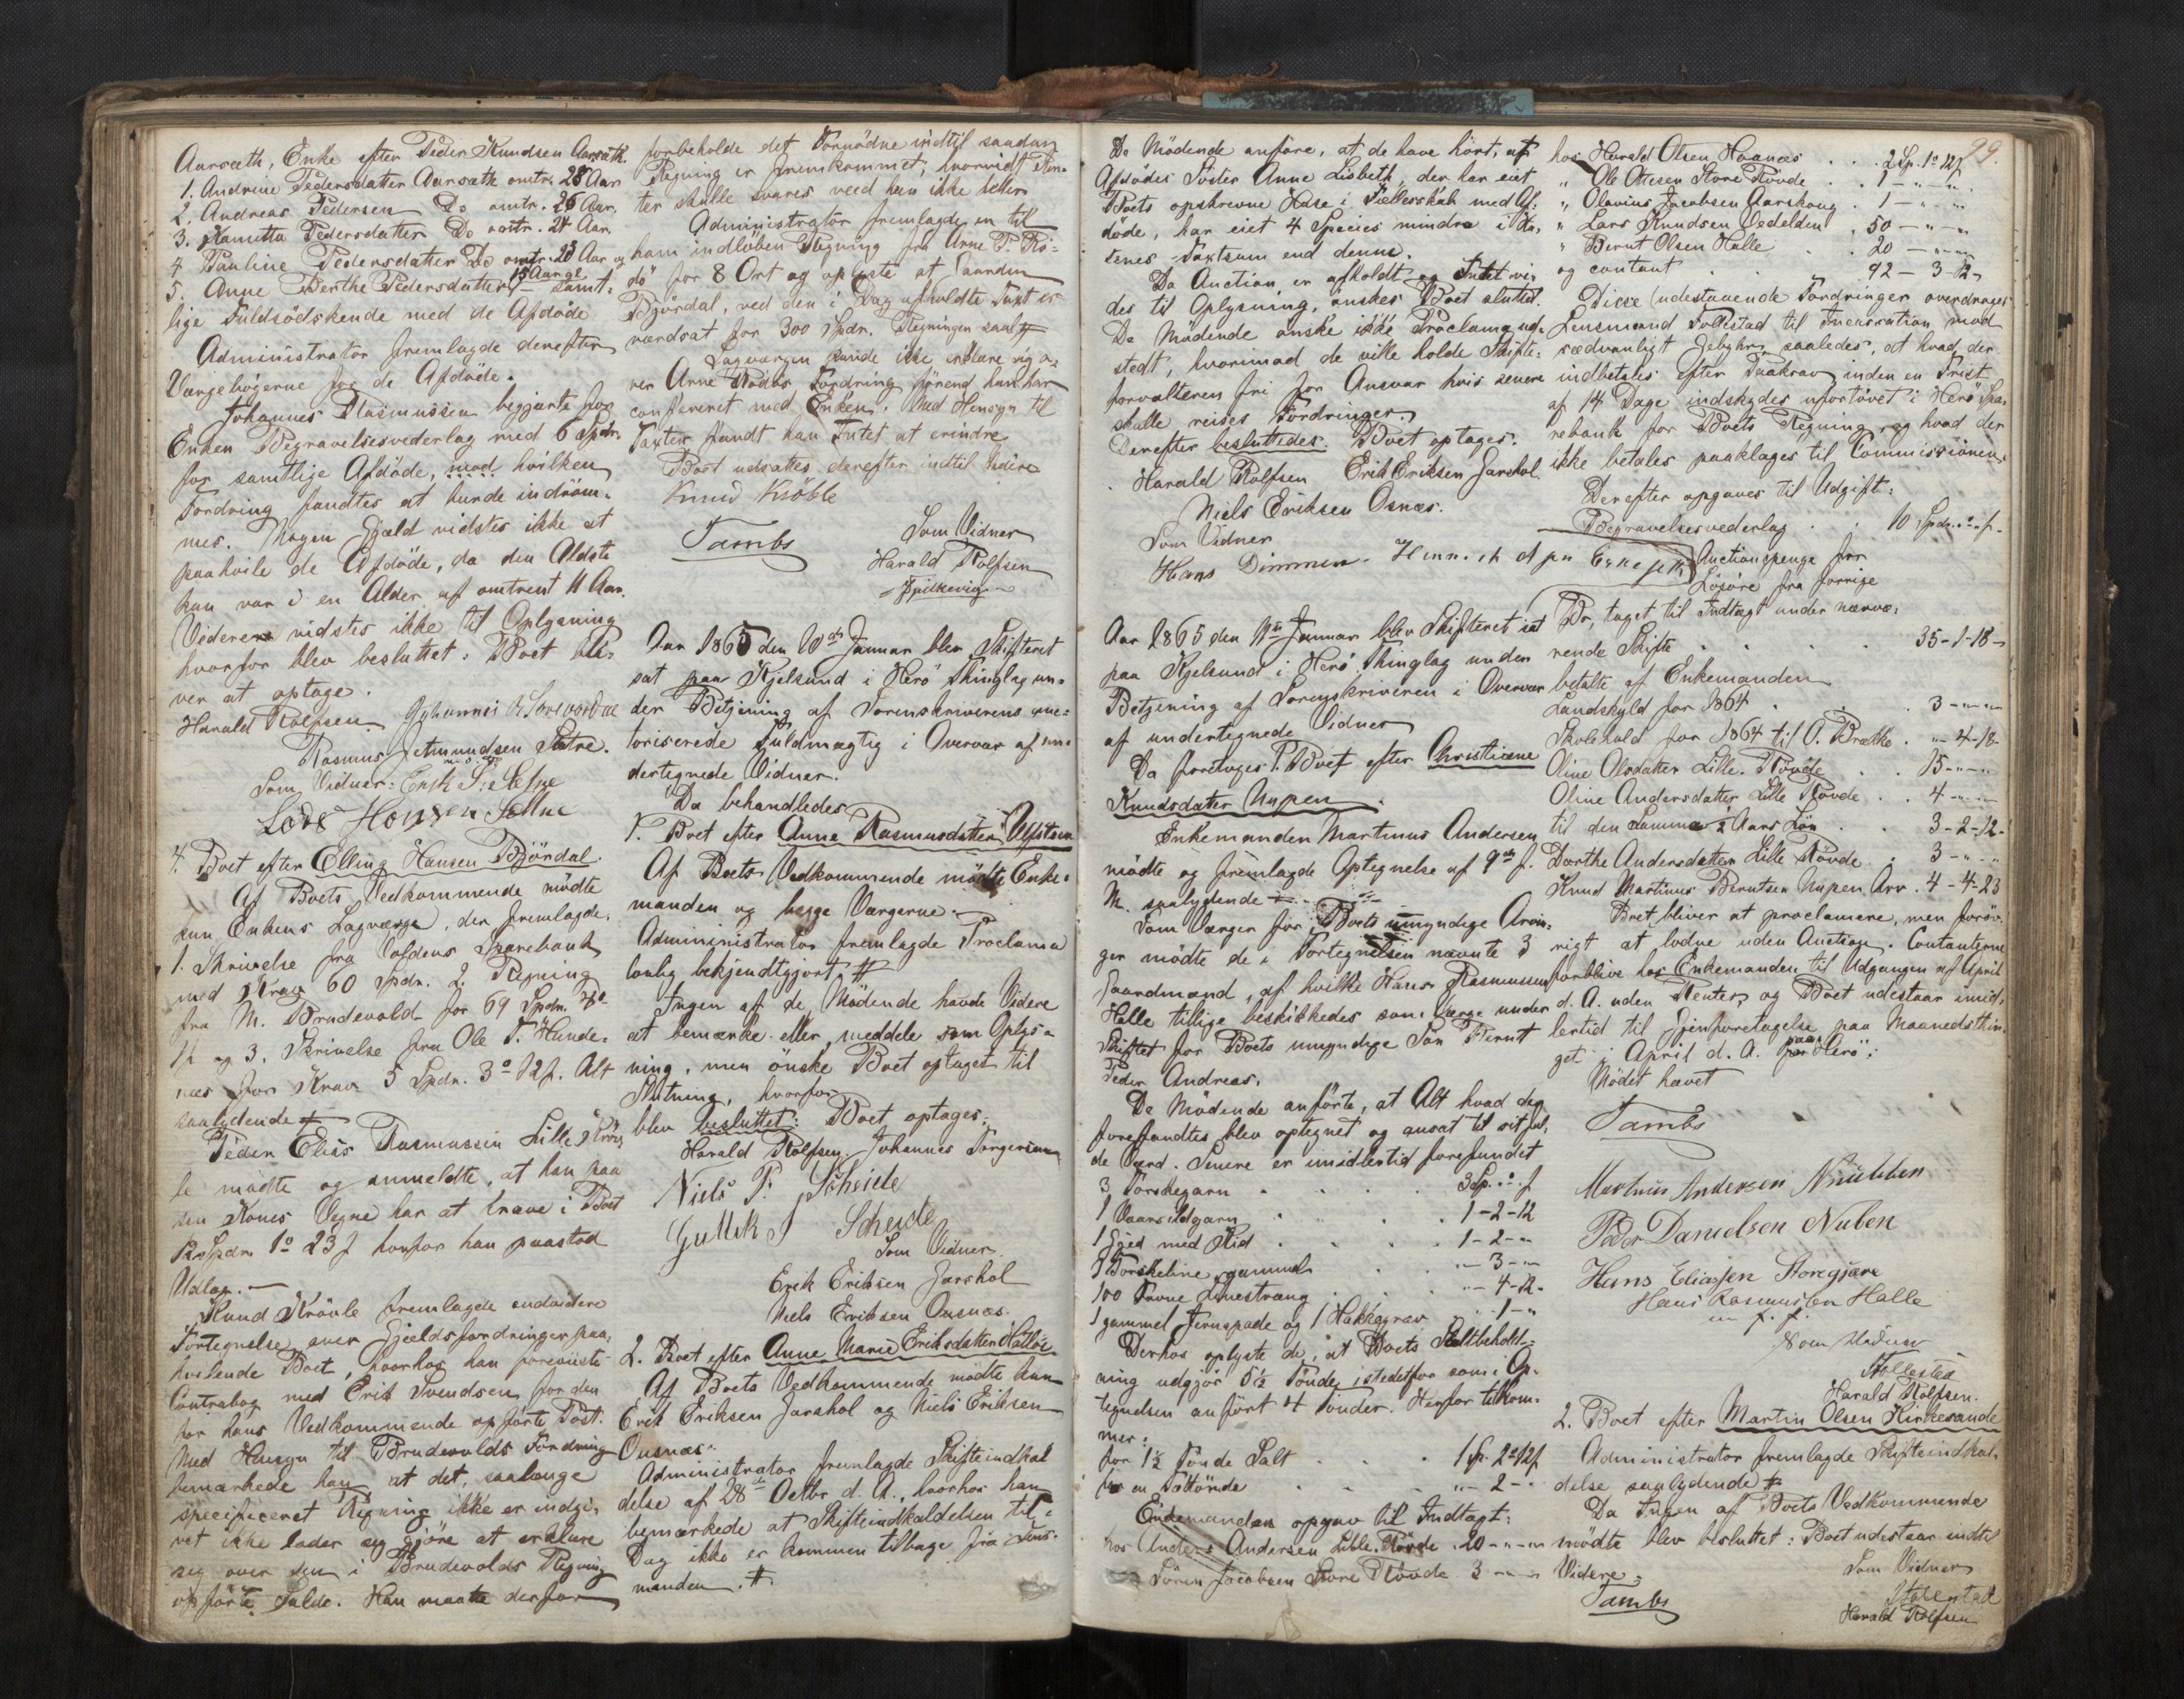 Aarsæth, Enke efter Peder Knudsen Aarsæth.
1. Andrine Pedersdatter Aarsæth omtr. 28 Aar
2. Andreas Pedersen Do omtr. 26 Aar.
3. Hanitta Pedersdatter Do omtr. 24 Aar.
4. Pauline Pedersdatter Do omtr. 23 Aar og
5. Anne Berthe Pedersdatter 15 Aar gl. samt-
lige Fuldsødskende med de Afdøde
Administrator fremlagde derefter
Værgebøgerne for de Afdøde.
Johannes Rasmussen begjærte for
Enken Begravelsesvederlag med 6 Spdr.
for samtlige Afdøde, mod hvilken
Fordring fandtes at kunde indrøm-
mes. Nogen Gjæld vidstes ikke at
paahvile de Afdøde, da den Ældste
kun var i en Alder af omtrent 11 Aar.
Videre vidstes ikke til Oplysning
hvorfor blev besluttet: Boet bli-
ver at optage.
Harald Rolfsen Johannes R
Rasmus Jetmundsen Sætre.
m. o. P.
Som Vidner: Erik
Lars Hansen
4. Boet efter Elling Hansen Bjørdal.
Af Boets Vedkommende mødte
kun Enkens Lagværge, der fremlagde.
1. Skrivelse fra Voldens Sparebank
med Krav 60 Spdr. 2. Regning
fra M. Brudevold for 69 Spdr.
og 3. Skrivelse fra Ole T. Hunde-
næs for Krav 5 Spdr. 3o 12 s. Alt
saalydende #
Peder Elias Rasmussen Lille Røv-
de mødte og anmeldte, at han paa
sin Kones Vegne har at kræve i Boet
12 Spdr. 1o 23 s hvorfor han paastod
Udlæg.
Knud Krøvle fremlagde endvidere
Fortegnelse over Gjældsfordringer paa-
hvilende Boet, hvorhos han foreviiste
Contrabog med Erik Svendsen for den
for hans Vedkommende opførte Post.
Med Hensyn til Brudevolds Fordring
bemærkede han, at det, saalænge
specificeret Regning ikke er indgi-
vet ikke lader sig gjøre at erklære
sig over den i Brudevolds Regning
opførte Saldo. Han maatte derfor
forbeholde det Fornødne indtil saadan
Regning er fremkommet; hvorvidt Ren-
ter skulle svares veed han ikke heller
Administrator fremlagde en til
ham indløben Regning fra Arne P. Rø-
dø for 8 Ort og oplyste at Gaarden
Bjørdal, ved den i Dag afholdte Taxt er
værdsat for 300 Spdr. Regningen saal. #
Lagværgen kunde ikke erklære sig o-
ver Arne Rødøs Fordring førend han har
confereret med Enken. Med Hensyn til
Taxten fandt han Intet at erindre
Boet udsattes derefter indtil Videre
Knud Krøvle
Tambs
Som Vidner
Harald Rolfsen
Spilkevig
Aar 1865 den 10de Januar blev Skifteret
sat paa Kjelsund i Herø Thinglag un-
der Betjening af Sorenskriverens auc-
toriserede Fuldmægtig i Overvær af un-
dertegnede Vidner.
Da behandledes
1. Boet efter Anne Rasmusdatter Ulfsteen
Af Boets Vedkommende mødte Enke-
manden og begge Værgerne.
Administrator fremlagde Proclama
lovlig bekjendtgjort #
Ingen af de Mødende havde Videre
at bemærke eller meddele som Oplys-
ning, men ønske Boet optaget til
Slutning, hvorfor
blev besluttet: Boet optages.
Harald Rolfsen. Johannes Torgersen
Niels P. Scheide
Gullik J Scheide
Som Vidner.
Erik Eriksen Jarshol
Niels Eriksen Ousnæs.
2. Boet efter Anne Marie Eriksdatter Hatløe
Af Boets Vedkommende mødte kun
Erik Eriksen Jarshol og Niels Eriksen
Ousnæs.
Administrator fremlagde Skifteindkal
delse af 28de Octbr d. A., hvorhos han
bemærkede at Skifteindkaldelsen til-
Dag ikke er kommen tilbage fra Lens-
manden. #
De Mødende anføre, at de have hørt, at
Afdødes Søster Anne Lisbeth, der har eiet
Boets opskrevne Hæse i Fællesskab med Af-
døde, har eiet 4 Species mindre i Hæ-
senes Taxtsum end denne.
Da Auction er afholdt og Intet vi-
des til Oplysning, ønskes Boet sluttet.
De Mødende ønske ikke Proclama ud-
stedt, hvorimod de ville holde Skifte-
forvalteren fri for Ansvar hvis senere
skulle reises Fordringer.
Derefter besluttedes: Boet optages.
Harald Rolfsen Erik Eriksen Jarshol
Niels Eriksen Osnæs.
Som Vidner
Hans Dimmen.
Aar 1865 den 11te Januar blev Skifteret sat
paa Kjelsund i Herø Thinglag under
Betjening af Sorenskriveren i Overvær
af undertegnede Vidner
Da foretoges 1. Boet efter Christiane
Knudsdatter Nupen.
Enkemanden Martinus Andersen
mødte og fremlagde Optegnelse af 9de f.
M. saalydende #
Som Værger for Boets umyndige Arvin-
ger mødte de i Fortegnelsen nævnte 3
Gaardmænd, af hvilke Hans Rasmussen
Halle tillige beskikkedes som Værge under
Skiftet for Boets umyndige Søn Bernt
Peder Andreas.
De Mødende anførte, at Alt hvad der
forefandtes blev optegnet og ansat til sit ful-
de Værd. Senere er imidlertid forefundet
3 Torskegarn . . . . 3 Sp. " o " s
1 Vaarsildgarn . . . . 1-2-12
1 Gjed med Kid . . . . 1-2-"
1 Torskeline gammel . . . "-3-"
100 Favne Linestræng . . . "-4-12.
1 gammel Jernspade og 1 Hakkegrev "-1-"
Derhos oplyste de, at Boets Saltbehold-
ning udgjør 5½ Tønde istedetfor som i Op-
tegnelsen anført 4 Tønder. Herfor tilkom-
mer:
for 1½ Tønde Salt . . . 1 Sp. 2o 12 s
for en Tøttønde . . . "-2-"
Enkemanden opgav til Indtægt:
hos Anders Andersen Lille Røvde . 20-"-"
Søren Jacobsen Store Røvde 3-"-"
99.
hos Harald Olsen Haanæs . . . 2 Sp. 1o 12 s
" Ole Ottesen Store Røvde . . 1-"-"
" Olavius Jacobsen Aarskoug . 1-"-"
" Lars Knudsen Vedelden . 50-"-"
" Bernt Olsen Halle . . 20-"-"
og contant . . . . 92-3-12
Disse udestaaende Fordringer overdrages
Lensmand Follestad til Incassation mod
sædvanligt Gebyhr, saaledes, at hvad der
indbetales efter Paakrav inden en Frist
af 14 Dage indskydes ufortøvet i Herø Spa-
rebank for Boets Regning, og hvad der
ikke betales paaklages til Commissionen.
Derefter opgaves til Udgift:
Begravelsesvederlag . . 10 Spdr. " o " s.
Auctionspenge for
Løsøre fra forrige
Bo, taget til Indtægt under nærvæ-
rende Skifte . . . . 35-1-18
betalte af Enkemanden
Landskyld for 1864 . . . 3-"-"
Skolehold for 1864 til O. Brække . "-4-18-
Oline Olsdatter Lille Røvde . . 15-"-"
Oline Andersdatter Lille Røvde . . 4-"-"
til den Samme ½ Aars Løn . . 3-2-12.
Dorthe Andersdatter Lille Røvde . 3-"-"
Knud Martinus Berntsen Nupen Arv . 4-4-23
Boet bliver at proclamere, men forøv-
rigt at lodne uden Auction. Contanterne
forblive hos Enkemanden til Udgangen af April
d. A. uden Renter, og Boet udestaar imid-
lertid til Gjenforetagelse paa Maanedsthin-
get i April d. A. paa Herø;
Mødet hævet
Tambs
Martinus Andersen
Peder Danielsen Nuben
Hans Eliassen Storegjære
Hans Rasmussen Halle
m. f. P.
Som Vidner
Follestad
Harald Rolfsen.
2. Boet efter Martin Olsen Kirkesande
Administrator fremlagde Skifteindkal-
delse saalydende #
Da Ingen af Boets Vedkommende
mødte blev besluttet: Boet udestaar indtil
Videre.
Som Vidner
Tambs
Follestad
Harald Rolfsen